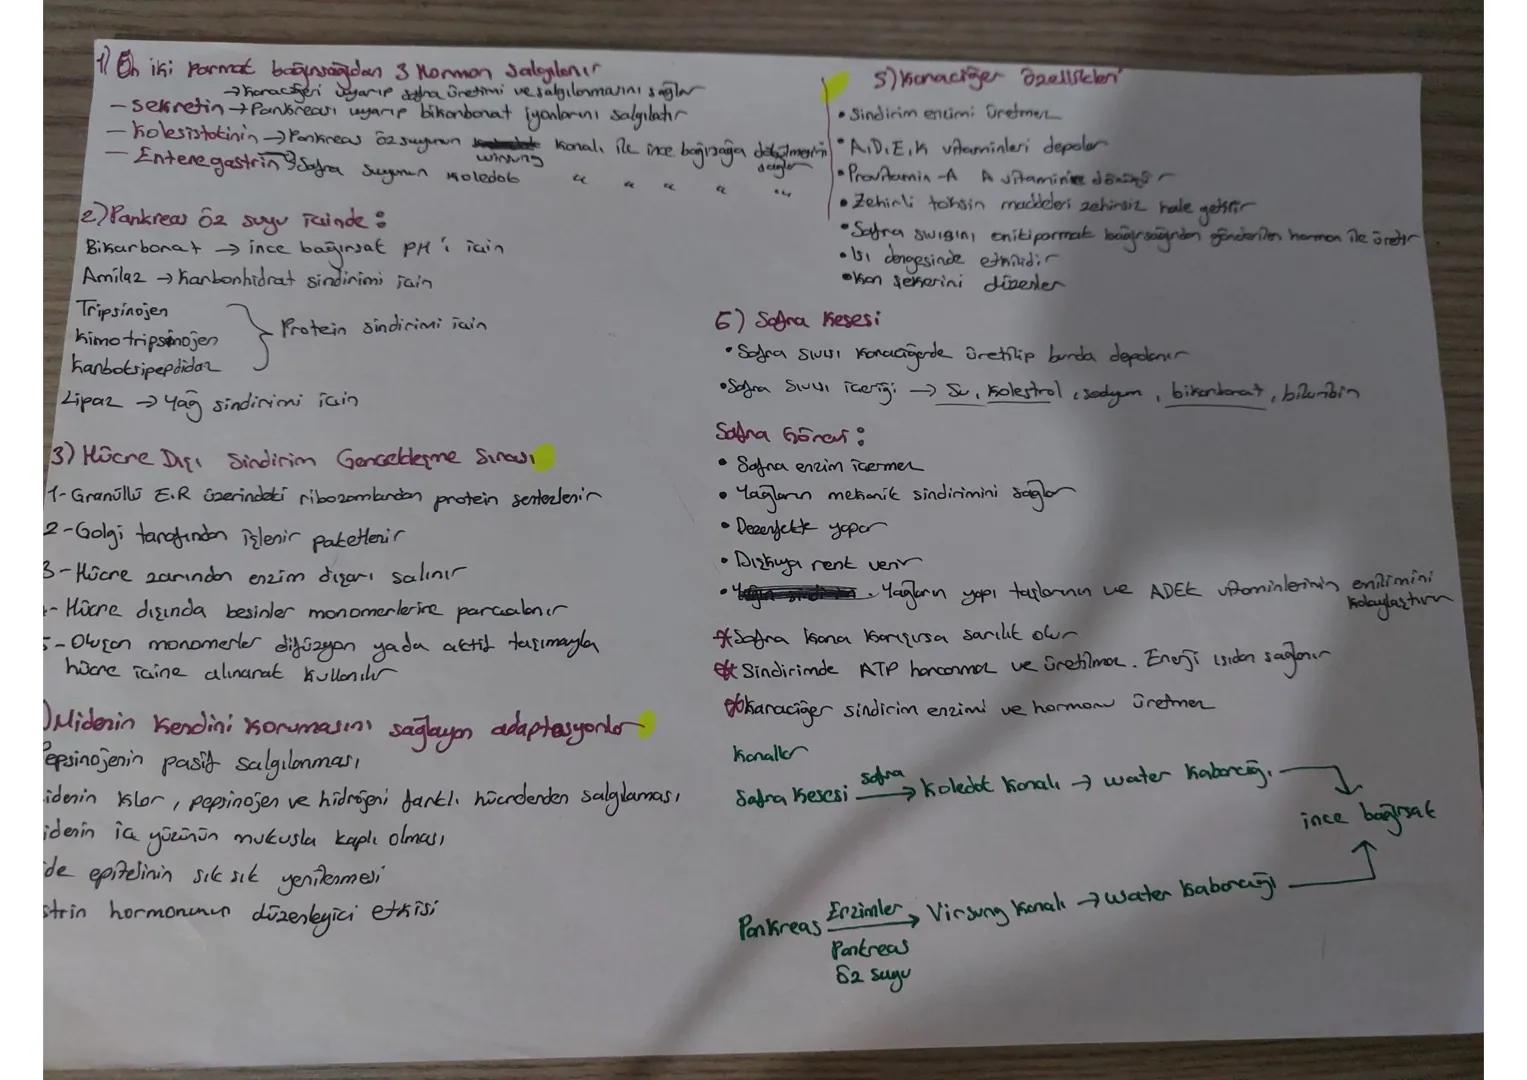 1) On iki parmak bağırsağıdan 3 Hormon salgılanır
→ Karaciğeri uyarıp safra üretimi ve salgılanmasını sağlar
- Sekretin → Pankreası uyarıp bikorbonat iyonlarını salgılatır
- Kolesistokinin → Pankreas özsuyunun wirsung kanalı ile ince bağırsağa dökülmesini sağlar
- Enteregastrin → Safra suyunun koledok " " " " "
2) Pankreas öz suyu içinde :
Bikarbonat → ince bağırsak PH'ı için
Amilaz → Karbonhidrat sindirimi için
Tripsinojen
Kimotripsinojen
Karboksipepdidaz
Protein sindirimi için
Lipaz → Yağ sindirimi için
3) Hücre Dışı Sindirim Gerçekleşme Sırası
1- Granüllü E.R üzerindeki ribozomlardan protein sentezlenir
2- Golgi tarafından işlenir paketlenir
3- Hücre zarından enzim dışarı salınır
- Hücre dışında besinler monomerlerine parçalanır
5- Oluşan monomerler difüzyon yada aktif taşımayla
hücre içine alınarak kullanılır
) Midenin kendini korumasını sağlayan adaptasyonlar
Pepsinojenin pasif salgılanması
idenin klor, pepsinojen ve hidrojeni farklı hücrelerden salgılaması
idenin iç yüzünün mukusla kaplı olması
ide epitelinin sık sık yenilenmesi
strin hormonunun düzenleyici etkisi
5) Karaciğer özellikleri
• Sindirim enzimi üretmez
• A,D,E,K vitaminleri depolar
• Provitamin-A A vitaminine dönüşür
• Zehirli toksin maddeleri zehirsiz hale getirir
• Safra sıvısını onikiparmak bağırsağından gönderilen hormon ile üretir
• Isı dengesinde etkilidir
• Kan şekerini düzenler
6) Safra Kesesi
• Safra sıvısı karaciğerde üretilip burda depolanır
• Safra sıvısı içeriği → Su, kolestrol, sodyum, bikarbonat, biluribin
Safra Görevi :
• Safra enzim içermez
• Yağların mekanik sindirimini sağlar
• Dezenfekte yapar
• Dışkıya renk verir
• Yağların yapı taşlarının ve ADEK vitaminlerinin emilimini kolaylaştırır
* Safra kana karışırsa sarılık olur
* Sindirimde ATP harcanmaz ve üretilmez. Enerji ısıdan sağlanır
* Karaciğer sindirim enzimi ve hormonu üretmez
Kanallar
Safra Kesesi safra → Koledok kanalı → water kabarcığı
ince bağırsak
Pankreas Enzimler → Virsung kanalı → water kabarcığı
Pankreas
öz suyu